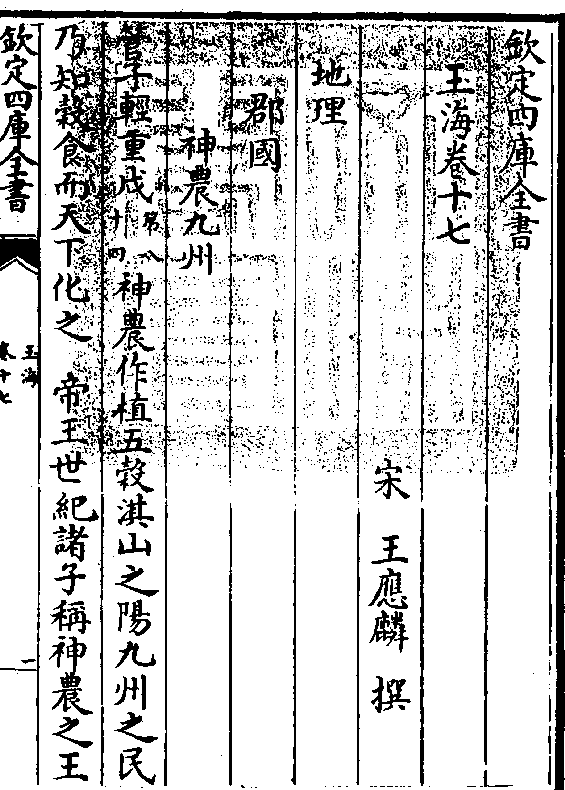 欽定四庫全書
玉海卷十七
宋　王應麟　撰
地理
郡國
神農九州
管子輕重戊第八十四神農作植五穀淇山之陽九州之民
乃知穀食而天下化之　帝王世紀諸子稱神農之王
欽定四庫全書
玉海
卷十七
一